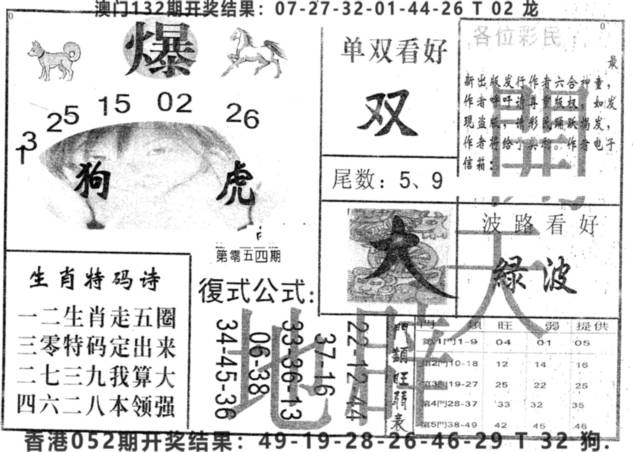 澳门132期开奖结果：07-27-32-01-44-26 T 02 龙
爆
25 15 02 26
13
狗 虎
单双看好
双
尾数：5、9
各位彩民：
新出版发行作者六合神童，
作者呼吁请尊重版权，如发
现盗版，请彩民踊跃揭发，
作者将给予奖
作者电子
信箱：
開
第零五四期
大
波路看好
綠波
天
地
生肖特码诗
一二生肖走五圈
三零特码定出来
二七三九我算大
四六二八本领强
復式公式：
34-45-36
06-38
33-36-13
37-16
22-12-44
門類旺弱表
門 類 旺 弱 提供
第1門1-9 04 01 05
第2門10-18 12 14 16
第3門19-27 25 22 25
第4門28-37 33 32 35
第5門38-49 42 45 46
香港052期开奖结果：49-19-28-26-46-29 T 32 狗.